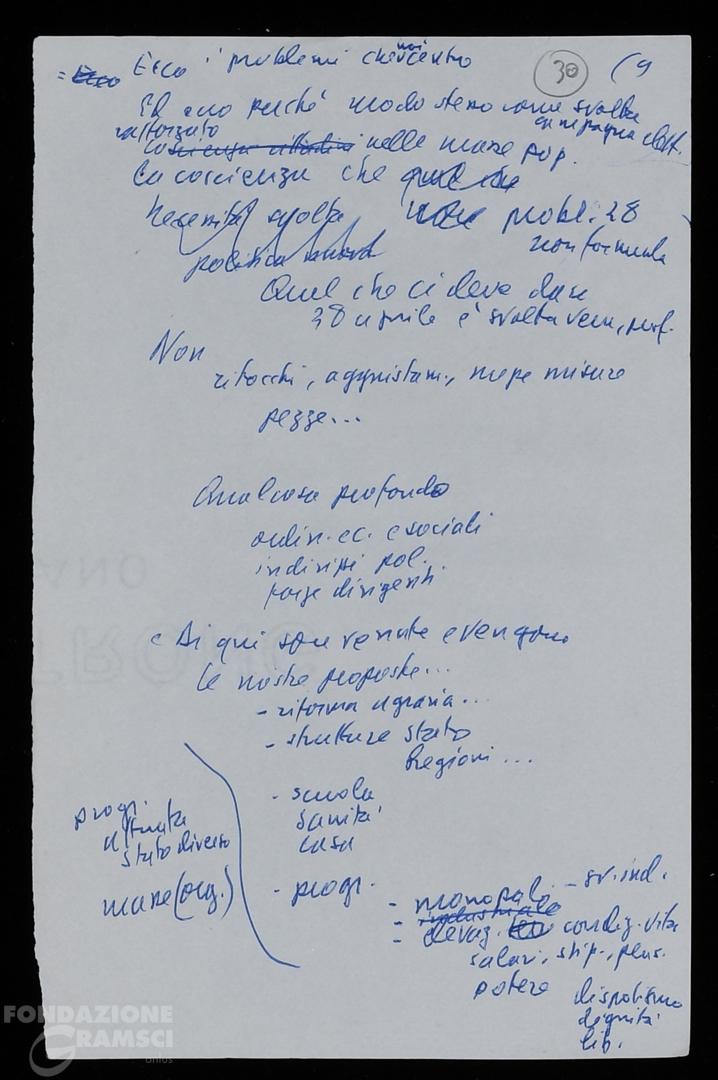 = Ecco Ecco i problemi che noi
30 (9
Ed ecco perché modo stesso come svolta
campagna elett.
rafforzato
coscienza cittadini nelle masse pop.
la coscienza che quel che
necessità svolta probl. 28
politica non formula
Quel che ci deve dare
28 aprile è svolta vera, prof.
Non
ritocchi, aggiustam., mezze misure
pezze...
Qualcosa profondo
ordin. ec. e sociali
indirizzi pol.
forze dirigenti
Di qui sono venute e vengono
le nostre proposte...
- riforma agraria...
- strutture stato
Regioni...
- scuola
sanità
casa
progr.
stato diverso
masse (org.)
- progr.
- monopoli - sv. ind.
- industriale
- elevaz. condiz. vita
salari, stip., pens.
potere
dispotismo
dignità
lib.
FONDAZIONE
GRAMSCI
onlus